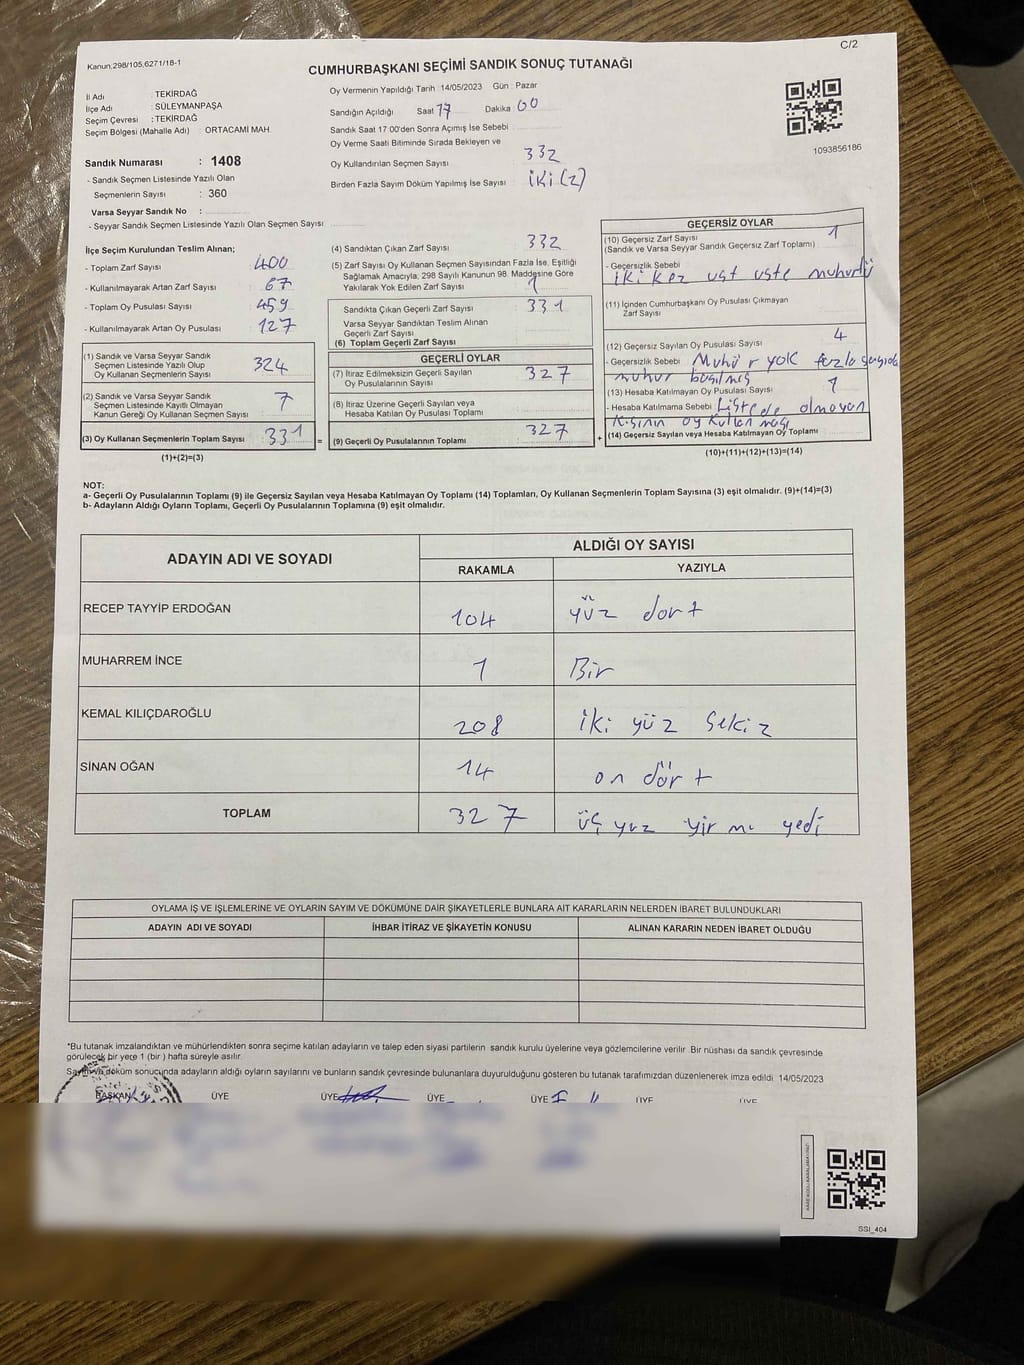 C/2
Kanun;298/105,6271/18-1
CUMHURBAŞKANI SEÇİMİ SANDIK SONUÇ TUTANAĞI
İl Adı : TEKİRDAĞ
İlçe Adı : SÜLEYMANPAŞA
Seçim Çevresi : TEKİRDAĞ
Seçim Bölgesi (Mahalle Adı) : ORTACAMİ MAH.
Sandık Numarası : 1408
- Sandık Seçmen Listesinde Yazılı Olan
Seçmenlerin Sayısı : 360
Varsa Seyyar Sandık No :
- Seyyar Sandık Seçmen Listesinde Yazılı Olan Seçmen Sayısı :
Oy Vermenin Yapıldığı Tarih : 14/05/2023 Gün : Pazar
Sandığın Açıldığı Saat 17 Dakika : 00
Sandık Saat 17:00'den Sonra Açımış İse Sebebi :
Oy Verme Saati Bitiminde Sırada Bekleyen ve
Oy Kullandırılan Seçmen Sayısı : 332
Birden Fazla Sayım Döküm Yapılmış İse Sayısı : iki (2)
1093856186
İlçe Seçim Kurulundan Teslim Alınan;
- Toplam Zarf Sayısı : 400
- Kullanılmayarak Artan Zarf Sayısı : 67
- Toplam Oy Pusulası Sayısı : 459
- Kullanılmayarak Artan Oy Pusulası : 127
(1) Sandık ve Varsa Seyyar Sandık
Seçmen Listesinde Yazılı Olup
Oy Kullanan Seçmenlerin Sayısı : 324
(2) Sandık ve Varsa Seyyar Sandık
Seçmen Listesinde Kayıtlı Olmayan
Kanun Gereği Oy Kullanan Seçmen Sayısı : 7
(3) Oy Kullanan Seçmenlerin Toplam Sayısı : 331
(1)+(2)=(3)
=
(4) Sandıktan Çıkan Zarf Sayısı : 332
(5) Zarf Sayısı Oy Kullanan Seçmen Sayısından Fazla İse, Eşitliği
Sağlamak Amacıyla; 298 Sayılı Kanunun 98. Maddesine Göre
Yakılarak Yok Edilen Zarf Sayısı : 1
Sandıkta Çıkan Geçerli Zarf Sayısı : 331
Varsa Seyyar Sandıktan Teslim Alınan
Geçerli Zarf Sayısı :
(6) Toplam Geçerli Zarf Sayısı :
GEÇERLİ OYLAR
(7) İtiraz Edilmeksizin Geçerli Sayılan
Oy Pusulalarının Sayısı : 327
(8) İtiraz Üzerine Geçerli Sayılan veya
Hesaba Katılan Oy Pusulaları Toplamı :
(9) Geçerli Oy Pusulalarının Toplamı : 327
+
GEÇERSİZ OYLAR
(10) Geçersiz Zarf Sayısı : 1
(Sandık ve Varsa Seyyar Sandık Geçersiz Zarf Toplamı)
- Geçersizlik Sebebi :
iki kez ust uste muhurlü
(11) İçinden Cumhurbaşkanı Oy Pusulası Çıkmayan
Zarf Sayısı :
(12) Geçersiz Sayılan Oy Pusulası Sayısı : 4
- Geçersizlik Sebebi : Muhür yok fazla sayıda
muhur basılmış
(13) Hesaba Katılmayan Oy Pusulası Sayısı : 1
- Hesaba Katılmama Sebebi : Listede olmayan
kişinin oy kullanması
(14) Geçersiz Sayılan veya Hesaba Katılmayan Oy Toplamı :
(10)+(11)+(12)+(13)=(14)
NOT:
a- Geçerli Oy Pusulalarının Toplamı (9) ile Geçersiz Sayılan veya Hesaba Katılmayan Oy Toplamı (14) Toplamları, Oy Kullanan Seçmenlerin Toplam Sayısına (3) eşit olmalıdır. (9)+(14)=(3)
b- Adayların Aldığı Oyların Toplamı, Geçerli Oy Pusulalarının Toplamına (9) eşit olmalıdır.
ADAYIN ADI VE SOYADI ALDIĞI OY SAYISI
RAKAMLA YAZIYLA
RECEP TAYYİP ERDOĞAN 104 yüz dort
MUHARREM İNCE 1 Bir
KEMAL KILIÇDAROĞLU 208 iki yüz Sekiz
SİNAN OĞAN 14 on dört
TOPLAM 327 üç yuz yirmi yedi
OYLAMA İŞ VE İŞLEMLERİNE VE OYLARIN SAYIM VE DÖKÜMÜNE DAİR ŞİKAYETLERLE BUNLARA AİT KARARLARIN NELERDEN İBARET BULUNDUKLARI
ADAYIN ADI VE SOYADI İHBAR İTİRAZ VE ŞİKAYETİN KONUSU ALINAN KARARIN NEDEN İBARET OLDUĞU
*Bu tutanak imzalandıktan ve mühürlendikten sonra seçime katılan adayların ve talep eden siyasi partilerin sandık kurulu üyelerine veya gözlemcilerine verilir. Bir nüshası da sandık çevresinde
görülecek bir yere 1 (bir) hafta süreyle asılır.
Sayım ve döküm sonucunda adayların aldığı oyların sayılarını ve bunların sandık çevresinde bulunanlara duyurulduğunu gösteren bu tutanak tarafımızdan düzenlenerek imza edildi. 14/05/2023
BAŞKAN ÜYE ÜYE ÜYE ÜYE ÜYE ÜYE
SSI_404